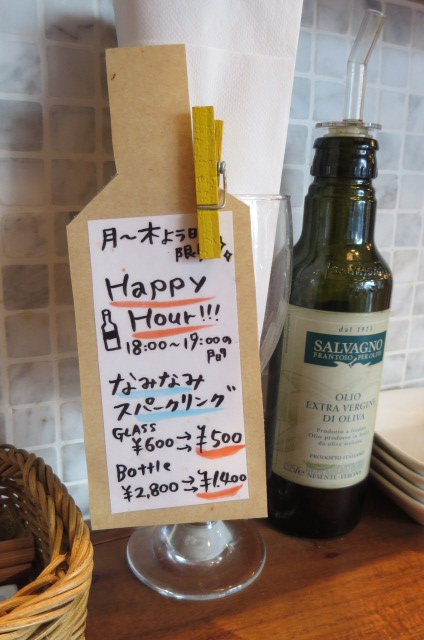 月〜木よう日
限定
Happy
Hour!!!
18:00〜19:00の
間
なみなみ
スパークリング
GLASS
¥600→¥500
Bottle
¥2,800→¥1,400
dal 1923
SALVAGNO
FRANTOIO PER OLIVE
OLIO
EXTRA VERGINE
DI OLIVA
PRODOTTO ITALIANO